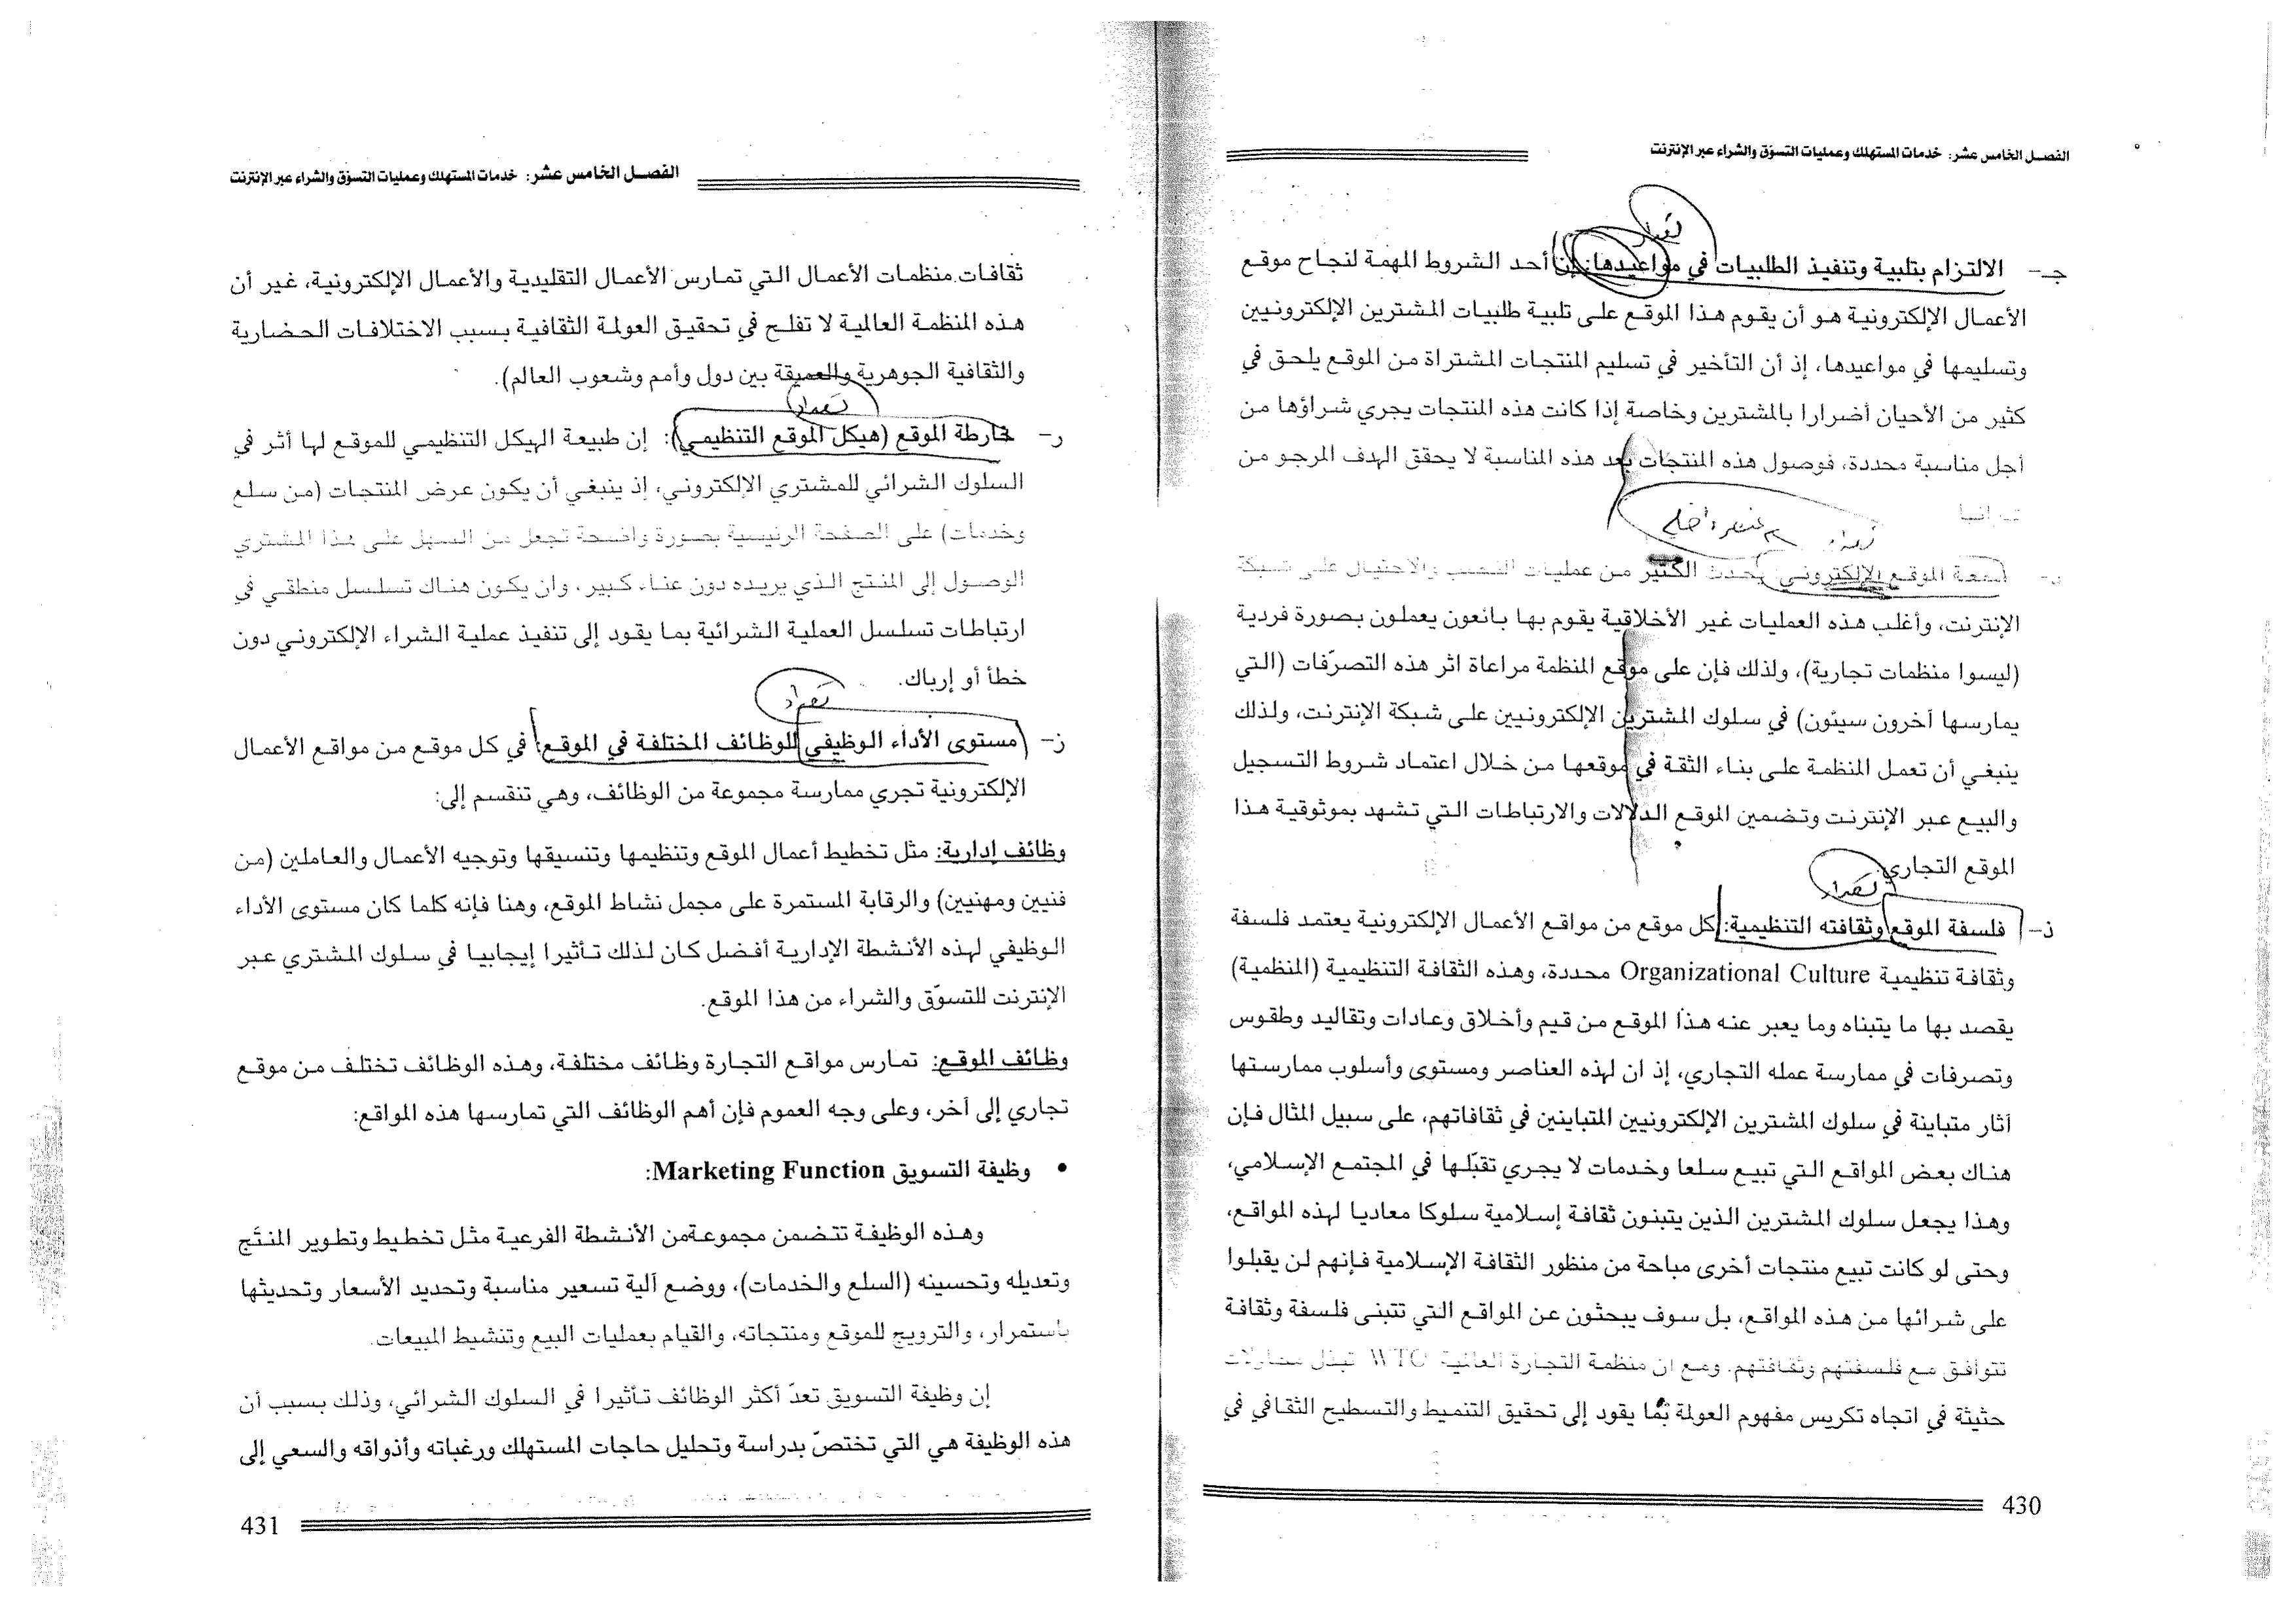 الفصل الخامس عشر: خدمات المستهلك وعمليات التسوّق والشراء عبر الإنترنت
تعداد
جـ- الالتزام بتلبية وتنفيذ الطلبيات في مواعيدها: إن أحد الشروط المهمة لنجاح موقع
الأعمال الإلكترونية هو أن يقوم هذا الموقع على تلبية طلبيات المشترين الإلكترونيين
وتسليمها في مواعيدها، إذ أن التأخير في تسليم المنتجات المشتراة من الموقع يلحق في
كثير من الأحيان أضرارا بالمشترين وخاصة إذا كانت هذه المنتجات يجري شراؤها من
أجل مناسبة محددة، فوصول هذه المنتجات بعد هذه المناسبة لا يحقق الهدف المرجو من
شرائها
تعداد
د- سمعة الموقع الإلكتروني: يحدث الكثير من عمليات النصب والاحتيال على شبكة
الإنترنت، وأغلب هذه العمليات غير الأخلاقية يقوم بها بائعون يعملون بصورة فردية
(ليسوا منظمات تجارية)، ولذلك فإن على موقع المنظمة مراعاة اثر هذه التصرّفات (التي
يمارسها آخرون سيئون) في سلوك المشترين الإلكترونيين على شبكة الإنترنت، ولذلك
ينبغي أن تعمل المنظمة على بناء الثقة في موقعها من خلال اعتماد شروط التسجيل
والبيع عبر الإنترنت وتضمين الموقع الدلالات والارتباطات التي تشهد بموثوقية هذا
الموقع التجاري.
تعداد
ذ- فلسفة الموقع وثقافته التنظيمية: كل موقع من مواقع الأعمال الإلكترونية يعتمد فلسفة
وثقافة تنظيمية Organizational Culture محددة، وهذه الثقافة التنظيمية (المنظمية)
يقصد بها ما يتبناه وما يعبر عنه هذا الموقع من قيم وأخلاق وعادات وتقاليد وطقوس
وتصرفات في ممارسة عمله التجاري، إذ ان لهذه العناصر ومستوى وأسلوب ممارستها
آثار متباينة في سلوك المشترين الإلكترونيين المتباينين في ثقافاتهم، على سبيل المثال فإن
هناك بعض المواقع التي تبيع سلعا وخدمات لا يجري تقبّلها في المجتمع الإسلامي،
وهذا يجعل سلوك المشترين الذين يتبنون ثقافة إسلامية سلوكا معاديا لهذه المواقع،
وحتى لو كانت تبيع منتجات أخرى مباحة من منظور الثقافة الإسلامية فإنهم لن يقبلوا
على شرائها من هذه المواقع، بل سوف يبحثون عن المواقع التي تتبنى فلسفة وثقافة
تتوافق مع فلسفتهم وثقافتهم. ومع ان منظمة التجارة العالمية WTO تبذل محاولات
حثيثة في اتجاه تكريس مفهوم العولمة بما يقود إلى تحقيق التنميط والتسطيح الثقافي في
430
الفصل الخامس عشر: خدمات المستهلك وعمليات التسوّق والشراء عبر الإنترنت
ثقافات منظمات الأعمال التي تمارس الأعمال التقليدية والأعمال الإلكترونية، غير أن
هذه المنظمة العالمية لا تفلح في تحقيق العولمة الثقافية بسبب الاختلافات الحضارية
والثقافية الجوهرية والعميقة بين دول وأمم وشعوب العالم).
تعداد
ر- خارطة الموقع (هيكل الموقع التنظيمي): إن طبيعة الهيكل التنظيمي للموقع لها أثر في
السلوك الشرائي للمشتري الإلكتروني، إذ ينبغي أن يكون عرض المنتجات (من سلع
وخدمات) على الصفحة الرئيسية بصورة واضحة تجعل من السهل على هذا المشتري
الوصول إلى المنتج الذي يريده دون عناء كبير، وان يكون هناك تسلسل منطقي في
ارتباطات تسلسل العملية الشرائية بما يقود إلى تنفيذ عملية الشراء الإلكتروني دون
خطأ أو إرباك.
تعداد
ز- مستوى الأداء الوظيفي للوظائف المختلفة في الموقع: في كل موقع من مواقع الأعمال
الإلكترونية تجري ممارسة مجموعة من الوظائف، وهي تنقسم إلى:
وظائف إدارية: مثل تخطيط أعمال الموقع وتنظيمها وتنسيقها وتوجيه الأعمال والعاملين (من
فنيين ومهنيين) والرقابة المستمرة على مجمل نشاط الموقع، وهنا فإنه كلما كان مستوى الأداء
الوظيفي لهذه الأنشطة الإدارية أفضل كان لذلك تأثيرا إيجابيا في سلوك المشتري عبر
الإنترنت للتسوّق والشراء من هذا الموقع.
وظائف الموقع: تمارس مواقع التجارة وظائف مختلفة، وهذه الوظائف تختلف من موقع
تجاري إلى آخر، وعلى وجه العموم فإن أهم الوظائف التي تمارسها هذه المواقع:
• وظيفة التسويق Marketing Function:
وهذه الوظيفة تتضمن مجموعةمن الأنشطة الفرعية مثل تخطيط وتطوير المنتَج
وتعديله وتحسينه (السلع والخدمات)، ووضع آلية تسعير مناسبة وتحديد الأسعار وتحديثها
باستمرار، والترويج للموقع ومنتجاته، والقيام بعمليات البيع وتنشيط المبيعات.
إن وظيفة التسويق تعدّ أكثر الوظائف تأثيرا في السلوك الشرائي، وذلك بسبب أن
هذه الوظيفة هي التي تختصّ بدراسة وتحليل حاجات المستهلك ورغباته وأذواقه والسعي إلى
431